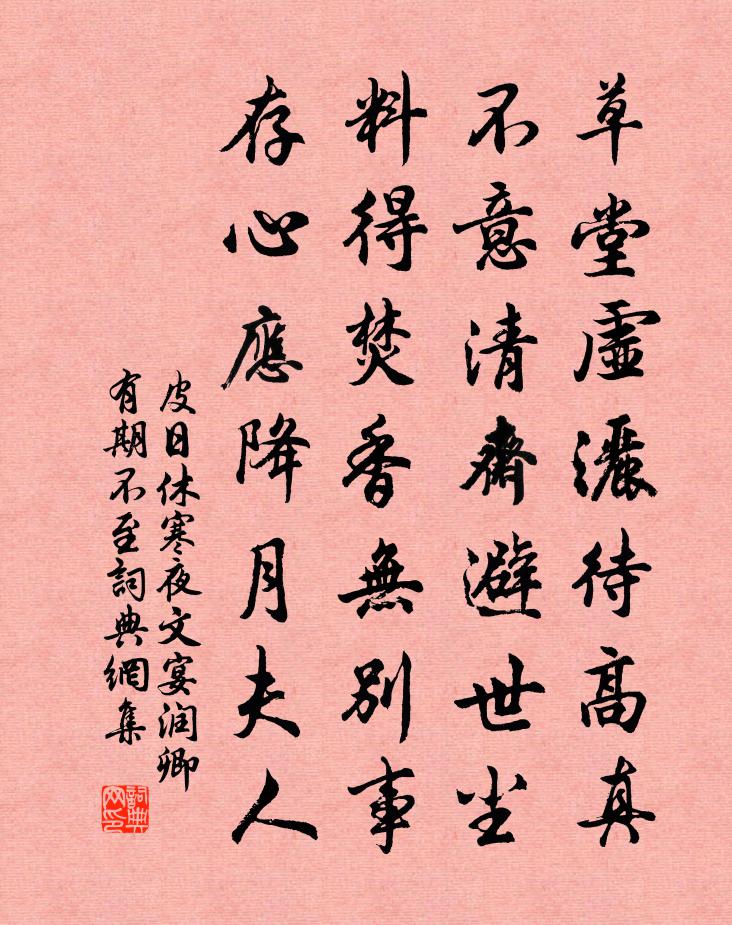 草堂虛灑待高真
不意清齋避世尘
料得焚香無別事
存心應降月夫人
皮日休寒夜文宴润卿
有期不至詞典網集
詞典
网印